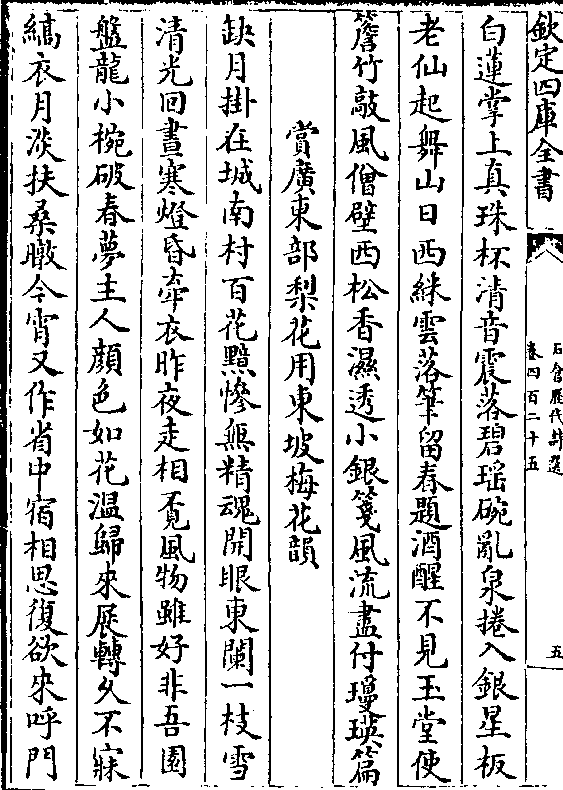 欽定四庫全書
石倉歷代詩選
卷四百二十五
五
白蓮掌上真珠杯清音震落碧瑶碗亂泉捲入銀星板
老仙起舞山日西絑雲落筆留春題酒醒不見玉堂使
簷竹敲風僧壁西松香濕透小銀箋風流盡付瓊瑛篇
賞廣東部梨花用東坡梅花韻
缺月掛在城南村百花黯慘無精魂開眼東闌一枝雪
清光回晝寒燈昏牽衣昨夜走相覔風物雖好非吾園
盤龍小椀破春夢主人顔色如花温歸來展轉久不寐
縞衣月淡扶桑暾今宵又作省中宿相思復欲來呼門